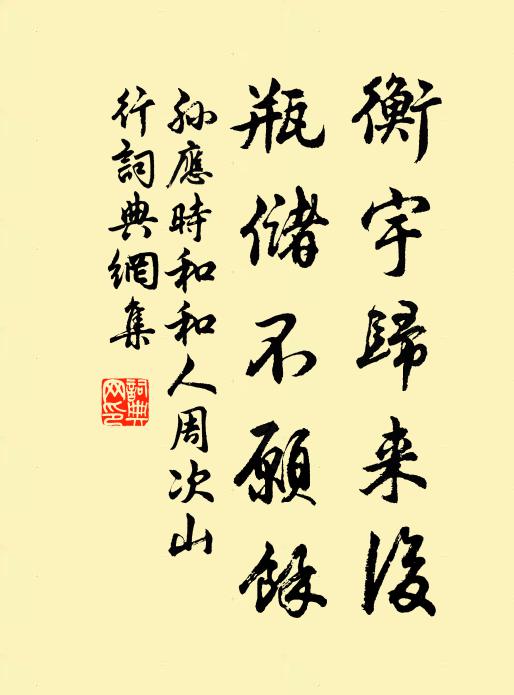 衡宇歸来後
瓶儲不願餘
孫應時和和人周次山
行詞典網集
詞典
网印